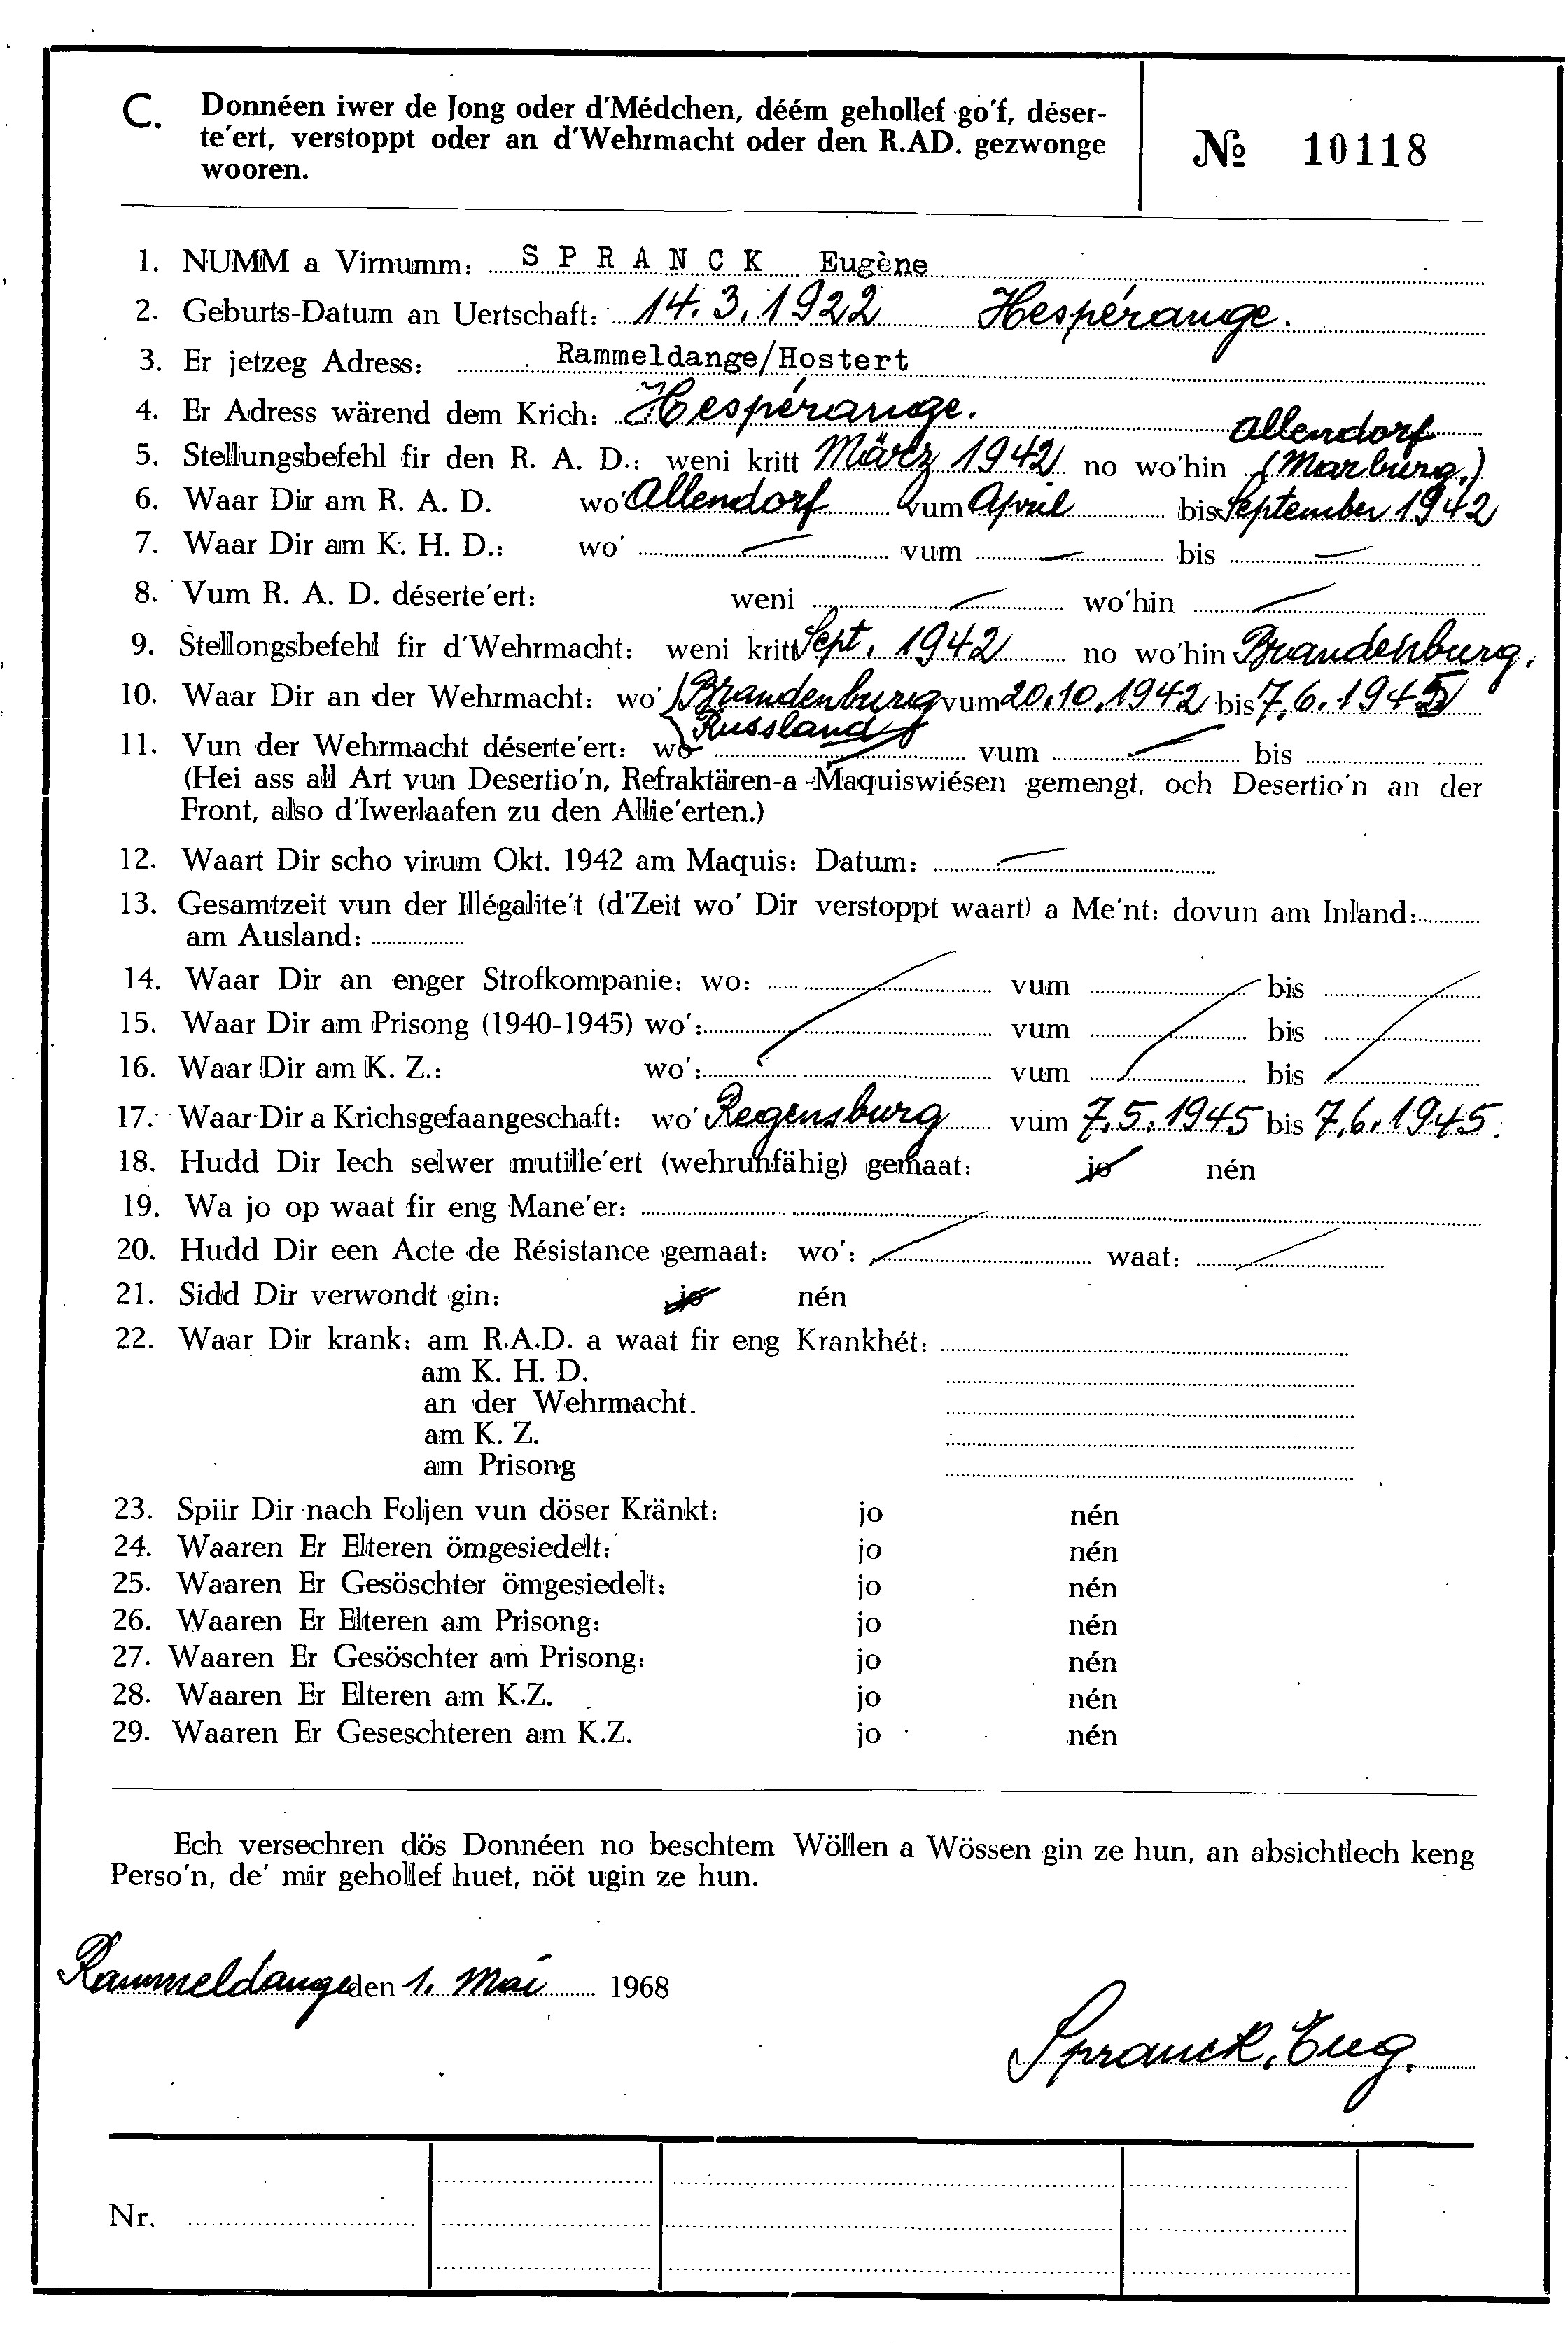 C. Donnéen iwer de Jong oder d'Médchen, déém gehollef go'f, déser-
te'ert, verstoppt oder an d'Wehrmacht oder den R.AD. gezwonge
wooren.
№ 10118
1. NUMM a Virnumm: SPRANCK Eugène
2. Geburts-Datum an Uertschaft: 14.3.1922 Hespérange.
3. Er jetzeg Adress: Rammeldange/Hostert
4. Er Adress wärend dem Krich: Hespérange.
5. Stellungsbefehl fir den R. A. D.: weni kritt März 1942 no wo'hin Allendorf (Marburg.)
6. Waar Dir am R. A. D. wo' Allendorf vum April bis September 1942
7. Waar Dir am K. H. D.: wo' — vum — bis —
8. Vum R. A. D. déserte'ert: weni — wo'hin —
9. Stellongsbefehl fir d'Wehrmacht: weni kritt Sept. 1942 no wo'hin Brandenburg.
10. Waar Dir an der Wehrmacht: wo' Brandenburg Russland vum 20.10.1942 bis 7.6.1945
11. Vun der Wehrmacht déserte'ert: wo — vum — bis
(Hei ass all Art vun Desertio'n, Refraktären-a-Maquiswiésen gemengt, och Desertio'n an der
Front, also d'Iwerlaafen zu den Allie'erten.)
12. Waart Dir scho virum Okt. 1942 am Maquis: Datum: —
13. Gesamtzeit vun der Illégalite't (d'Zeit wo' Dir verstoppt waart) a Me'nt: dovun am Inland:
am Ausland:
14. Waar Dir an enger Strofkompanie: wo: vum bis
15. Waar Dir am Prisong (1940-1945) wo': vum bis
16. Waar Dir am K. Z.: wo': vum bis
17. Waar Dir a Krichsgefaangeschaft: wo' Regensburg vum 7.5.1945 bis 7.6.1945.
18. Hudd Dir Iech selwer mutille'ert (wehrunfähig) gemaat: jo nén
19. Wa jo op waat fir eng Mane'er:
20. Hudd Dir een Acte de Résistance gemaat: wo': waat:
21. Sidd Dir verwondt gin: jo nén
22. Waar Dir krank: am R.A.D. a waat fir eng Krankhét:
am K. H. D.
an der Wehrmacht.
am K. Z.
am Prisong
23. Spiir Dir nach Foljen vun döser Kränkt: jo nén
24. Waaren Er Elteren ömgesiedelt: jo nén
25. Waaren Er Gesöschter ömgesiedelt: jo nén
26. Waaren Er Elteren am Prisong: jo nén
27. Waaren Er Gesöschter am Prisong: jo nén
28. Waaren Er Elteren am K.Z. jo nén
29. Waaren Er Geseschteren am K.Z. jo nén
Ech versechren dös Donnéen no beschtem Wöllen a Wössen gin ze hun, an absichtlech keng
Perso'n, de' mir gehollef huet, nöt ugin ze hun.
Rammeldange den 1. Mai 1968
Spranck, Eug.
Nr.